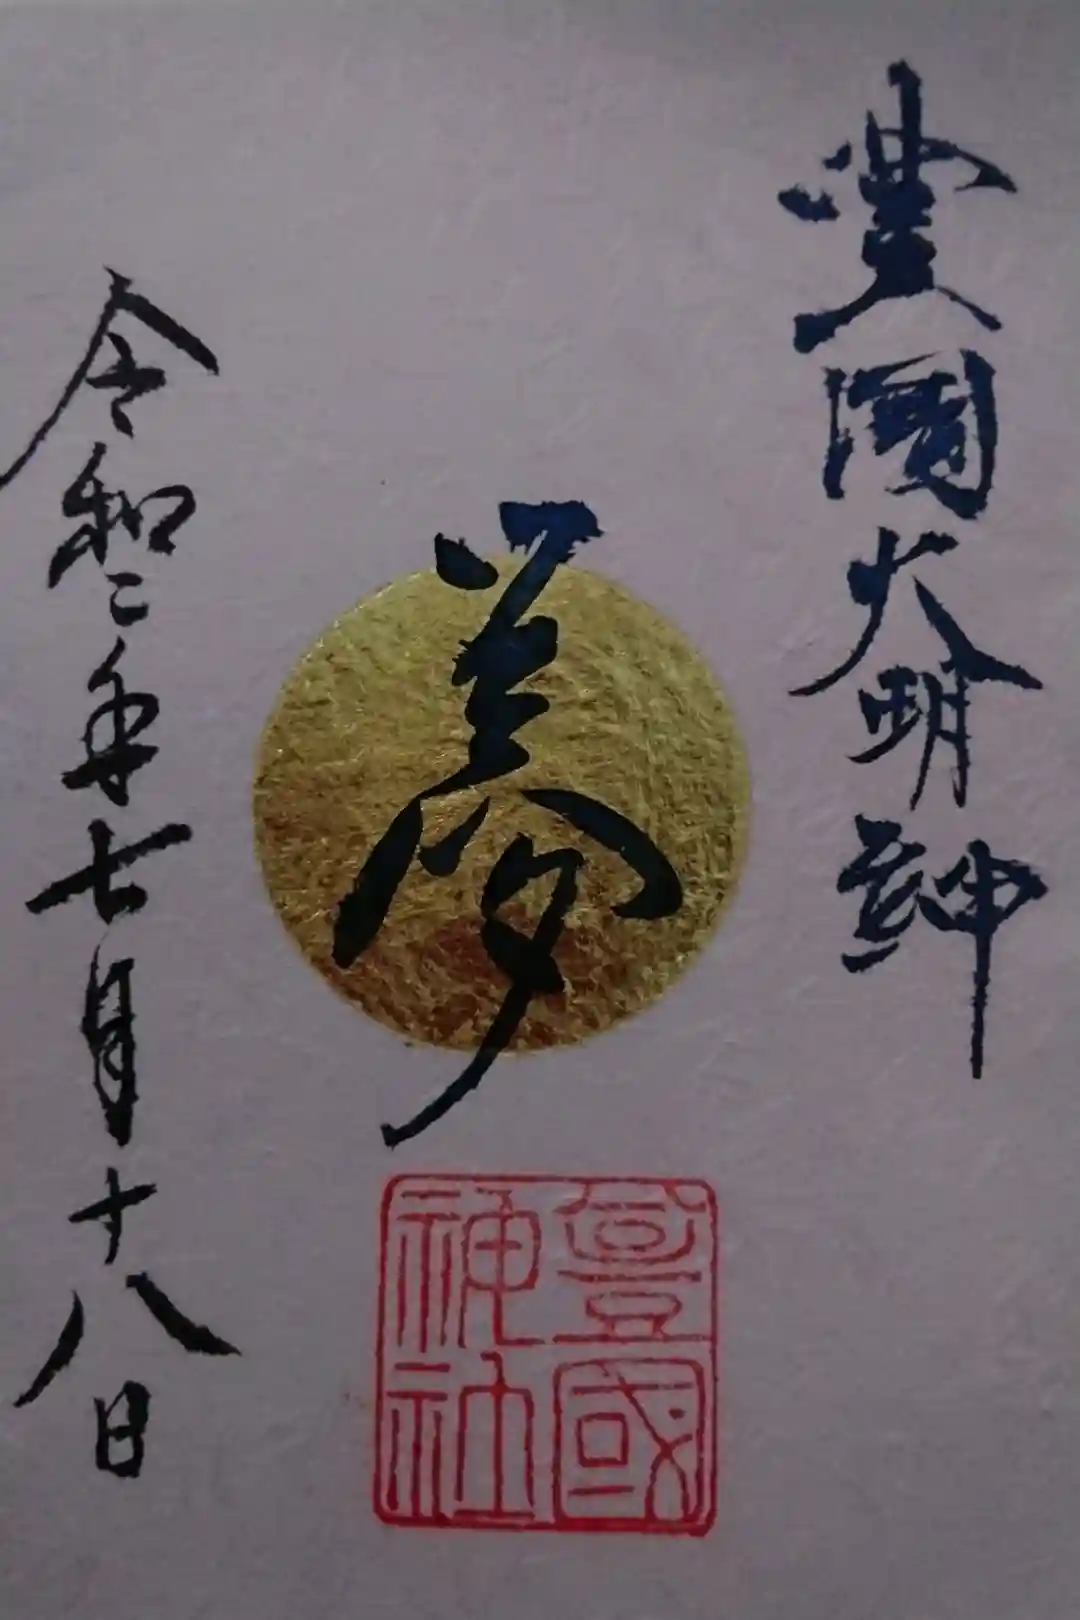 豐國大明神
夢
豊國神社
令和二年七月十八日